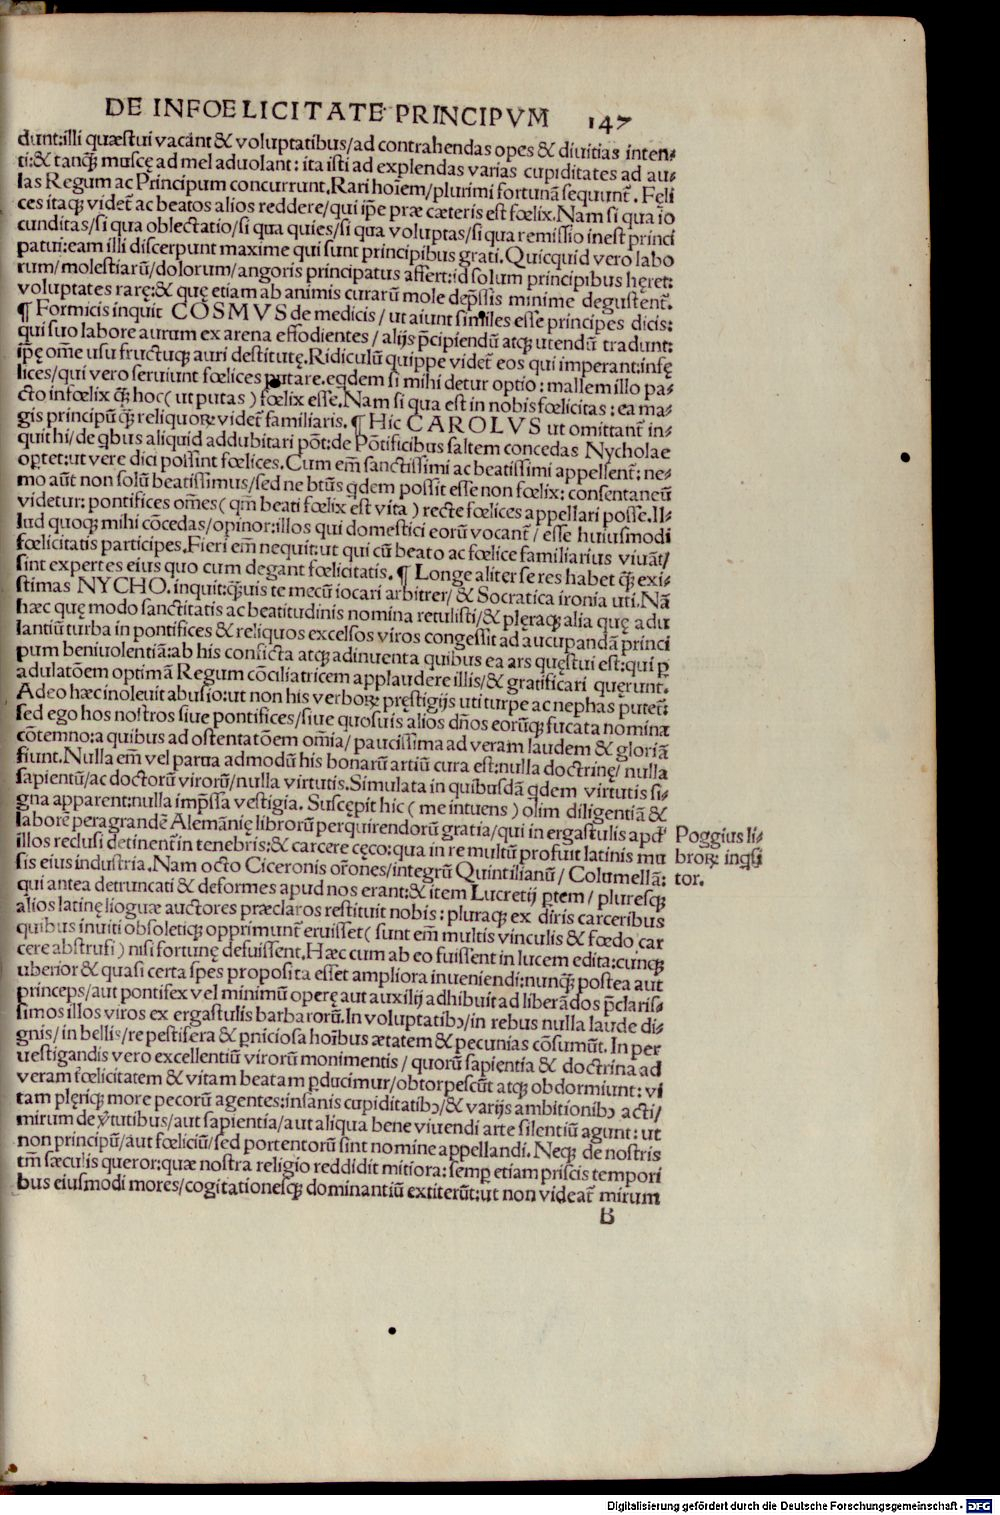 DE INFOELICITATE PRINCIPVM 147
dunt:illi quæstui vacãnt & voluptatibus/ad contrahendas opes & diuitias inten⸗
ti:& tanq̃ muscę ad mel aduolant: ita isti ad explendas varias cupiditates ad au⸗
las Regum ac Principum concurrunt.Rari hoĩem/plurimi fortunã sequunt̃. Feli
ces itaq; videt̃ ac beatos alios reddere/qui ip̃e præ cæteris est fœlix.Nam si qua io
cunditas/si qua oblectatio/si qua quies/si qua voluptas/si qua remissio inest princi
patui:eam illi discerpunt maxime qui sunt principibus grati.Quicquid vero labo
rum/molestiarũ/dolorum/angoris principatus affert:id solum principibus hęret:
voluptates rarę:& quę etiam ab animis curarũ mole dep̃ssis minime degustent̃.
¶ Formicis inquit COSMVS de medicis/ut aiunt similes esse principes dicis:
qui suo labore aurum ex arena effodientes/alijs p̃cipiendũ atq; utendũ tradunt:
ip̃ę om̃e usu fructuq; auri destitutę.Ridiculũ quippe videt̃ eos qui imperant:infę
lices/qui vero seruiunt fœlices putare.eqdem si mihi detur optio:mallem illo pa⸗
cto infœlix q̃ hoc(ut putas)fœlix esse.Nam si qua est in nobis fœlicitas:ea ma⸗
gis principũ q̃ reliquoꝝ videt̃ familiaris.¶ Hic CAROLVS ut omittant̃ in⸗
quit hi/de qbus aliquid addubitari põt:de Põtificibus saltem concedas Nycholae
oꝑtet:ut vere dici possint fœlices.Cum em̃ sanctissimi ac beatissimi appellent̃:ne⸗
mo aũt non solũ beatissimus/sed ne bt̃us qdem possit esse non fœlix:consentaneũ
videtur:pontifices om̃es(qm̃ beati fœlix est vita)recte fœlices appellari posse.Il⸗
lud quoq; mihi cõcedas/opinor:illos qui domestici eorũ vocant̃/esse huiusmodi
fœlicitatis participes.Fieri em̃ nequit:ut qui cũ beato ac fœlice familiarius viuãt/
sint expertes eius quo cum degant fœlicitatis.¶ Longe aliter se res habet q̃ exi⸗
stimas NYCHO.inquit:q̃uis te mecũ iocari arbitrer/& Socratica ironia uti.Nã
hæc quę modo sanctitatis ac beatitudinis nomina retulisti/& plęraq; alia quę adu
lantiũ turba in pontifices & reliquos excelsos viros congessit ad aucupandã princi
pum beniuolentiã:ab his conficta atq; adinuenta quibus ea ars quęstui est:qui ꝑ
adulatõem optimã Regum cõciliatricem applaudere illis/& gratificari quęrunt.
Adeo hæc inoleuit abusio:ut non his verboꝝ pręstigijs uti turpe ac nephas putet̃:
sed ego hos nostros siue pontifices/siue quosuis alios dños eorũq; fucata nomina
cõtemno:a quibus ad ostentatõem om̃ia/paucissima ad veram laudem & gloriã
fiunt.Nulla em̃ vel parua admodũ his bonarũ artiũ cura est:nulla doctrinę/nulla
sapientũ/ac doctorũ virorũ/nulla virtutis.Simulata in quibusdã qdem virtutis si⸗
gna apparent:nulla imp̃ssa vestigia. Suscępit hic(me intuens)olim diligentiã &
laborẽ peragrandẽ Alemãnię librorũ perquirendorũ gratia/qui in ergastulis apd'
illos reclusi detinent̃ in tenebris:& carcere cęco:qua in re multũ profuit latinis mu
sis eius industria.Nam octo Ciceronis or̃ones/integrũ Quintilianũ/Columellã:
qui antea detruncati & deformes apud nos erant:& item Lucretij ꝑtem/pluresq;
alios latinę linguæ auctores præclaros restituit nobis:pluraq; ex diris carceribus
quibus inuiti obsoletiq; opprimunt̃ eruisset(sunt em̃ multis vinculis & fœdo car
cere abstrusi)nisi fortunę defuissent.Hæc cum ab eo fuissent in lucem edita:cunq;
uberior & quasi certa spes proposita esset ampliora inueniendi:nunq̃ postea aut
princeps/aut pontifex vel minimũ operę aut auxilij adhibuit ad liberãdos p̃claris⸗
simos illos viros ex ergastulis barbarorũ.In voluptatibꝰ/in rebus nulla laude di⸗
gnis/in bellis/re pestifera & ꝑniciosa hoĩbus ætatem & pecunias cõsumũt. In per
uestigandis vero excellentiũ virorũ monimentis/quorũ sapientia & doctrina ad
veram fœlicitatem & vitam beatam ꝑducimur/obtorpescũt atq; obdormiunt: vi
tam plęriq; more pecorũ agentes:insanis cupiditatibꝰ/& varijs ambitionibꝰ acti/
mirum de v̾tutibus/aut sapientia/aut aliqua bene viuendi arte silentiũ agunt: ut
non principũ/aut fœliciũ/sed portentorũ sint nomine appellandi. Neq; de nostris
tm̃ sæculis queror:quæ nostra religio reddidit mitiora:semꝑ etiam priscis tempori
bus eiusmodi mores/cogitationesq; dominantiũ extiterũt:ut non videat̃ mirum
B
Poggius li⸗
broꝝ inqsi
tor.
Digitalisierung gefördert durch die Deutsche Forschungsgemeinschaft - DFG